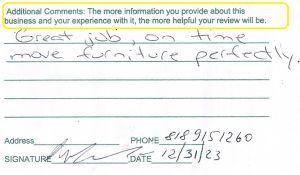 Additional Comments: The more information you provide about this
business and your experience with it, the more helpful your review will be.
Great job, on time
move furniture perfectly.
Address PHONE 8189151260
SIGNATURE DATE 12/31/23